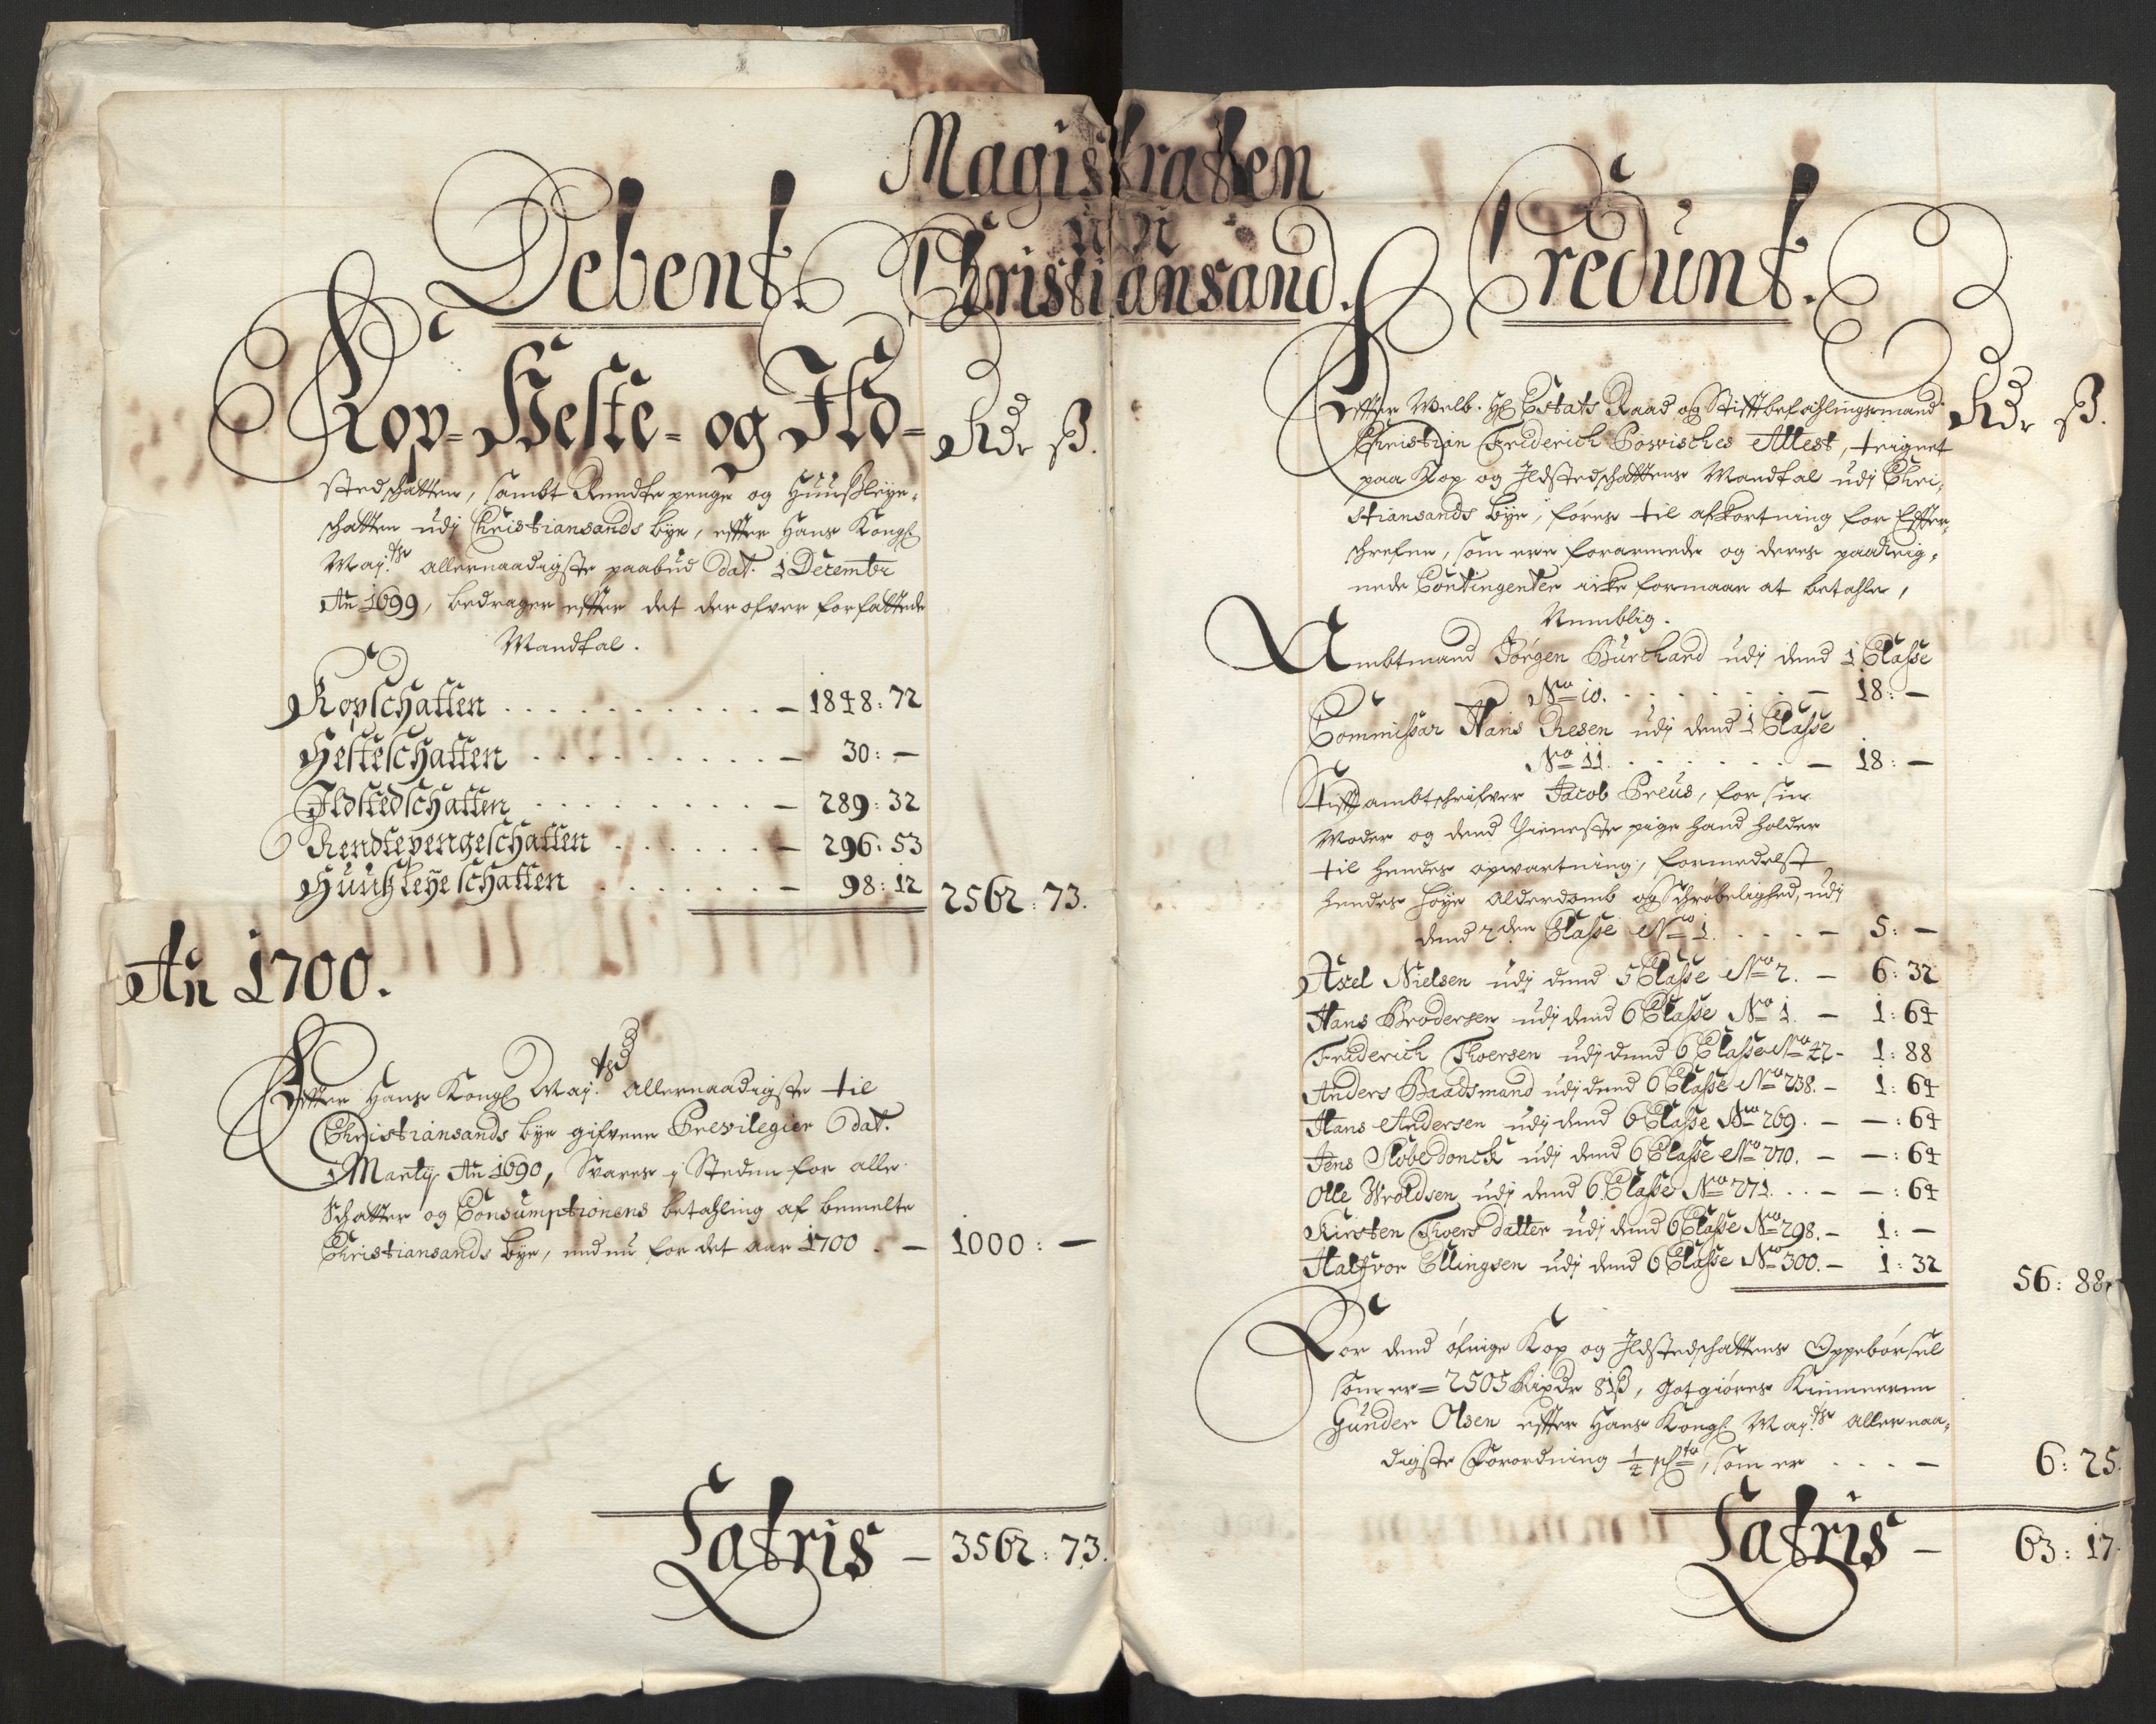 Magistraten
udi
Christiansand.
Debent.
Kop- Heste- og Ild-
Rdr ß.
stedschatten, sambt Rendtepenge og Huußleye-
schatten udj Christiansands bye, effter Hans Kongl
Maj.ts allernaadigste paabud dat. 1 Decembr
An 1699, bedrager effter det derofver forfattede
Mandtal.
Kopschatten - 1848: 72
Hesteschatten - 30: -
Ildstedschatten - 289: 32
Rendtepengeschatten - 296: 53
Huußleyeschatten - 98: 12
2562: 73.
An 1700.
Effter Hans Kongl Maj.ts allernaadigste til
Christiansands bye gifvene Previlegier dat.
1 Martij An 1690, Svares j Steden for alle
Schatter og Consumptionens betahling af bemelte
Christiansands bye, nu for det aar 1700 - 1000: -
Latris - 3562: 73.
Credunt.
Rdr ß.
Effter Welb. Hr Estats Raad og Stifftbefahlingsmand
Christian Friderich Powisches Attest, teignet
paa Kop og Ildstedschattens Mandtal udj Chri-
stiansands bye, føres til afkortning for Effter-
schrefne, som ere forarmede og deres paareig-
nede Contingenter icke formaar at betahle,
Nemblig.
Ambtmand Jørgen Burchard udj dend 1 Classe
No 10. - 18: -
Commissar Hans Resen udj dend 1 Classe
No 11. - 18: -
Stifftambtschrifver Jacob Preus, for sin
Moder og dend thieneste pige hand holder
til hendes opvartning, formedelst
hendes høye Alderdomb og Schrøbelighed, udj
dend 2den Classe No 1. - 5: -
Axel Nielsen udj dend 5 Classe No 2. - 6: 32
Hans Brodersen udj dend 6 Classe No 1. - 1: 64
Friderich Thoersen udj dend 6 Classe No 42 - 1: 88
Anders Baadsmand udj dend 6 Classe No 238. - 1: 64
Hans Andersen udj dend 6 Classe No 269. - -: 64
Jens Klobedonck udj dend 6 Classe No 270. - -: 64
Olle Wroldsen udj dend 6 Classe No 271. - -: 64
Kirsten Thoers datter udj dend 6 Classe No 298. - 1: -
Halfvor Ellingsen udj dend 6 Classe No 300. - 1: 32
56: 88.
For dend øfrige Kop og Ildstedschattens Oppebørsel
som er = 2505 Rixdr 81ß, godtgiøres Kiemneren
Gunder Olsen effter Hans Kongl Maj.ts allernaa-
digste Forordning 1/4 pCto, som er - 6: 25.
Latris - 63: 17.